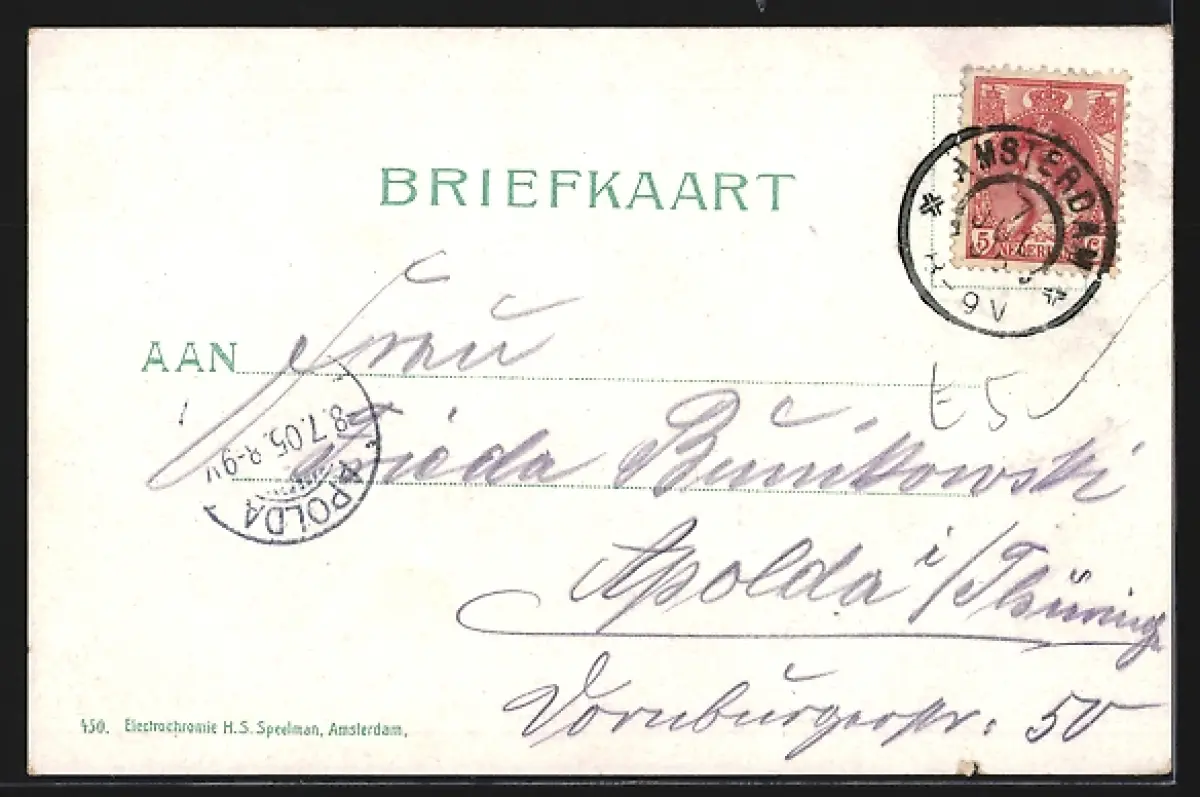 BRIEFKAART
AMSTERDAM
7 JUL
8-9V
5 NEDERLAND C
AAN
Frau
Frieda Bunikowski
Apolda i/Thüring
Dornburgerstr. 50
t 5
8.7.05. 8-9V
APOLDA
450. Electrochromie H.S. Speelman, Amsterdam.